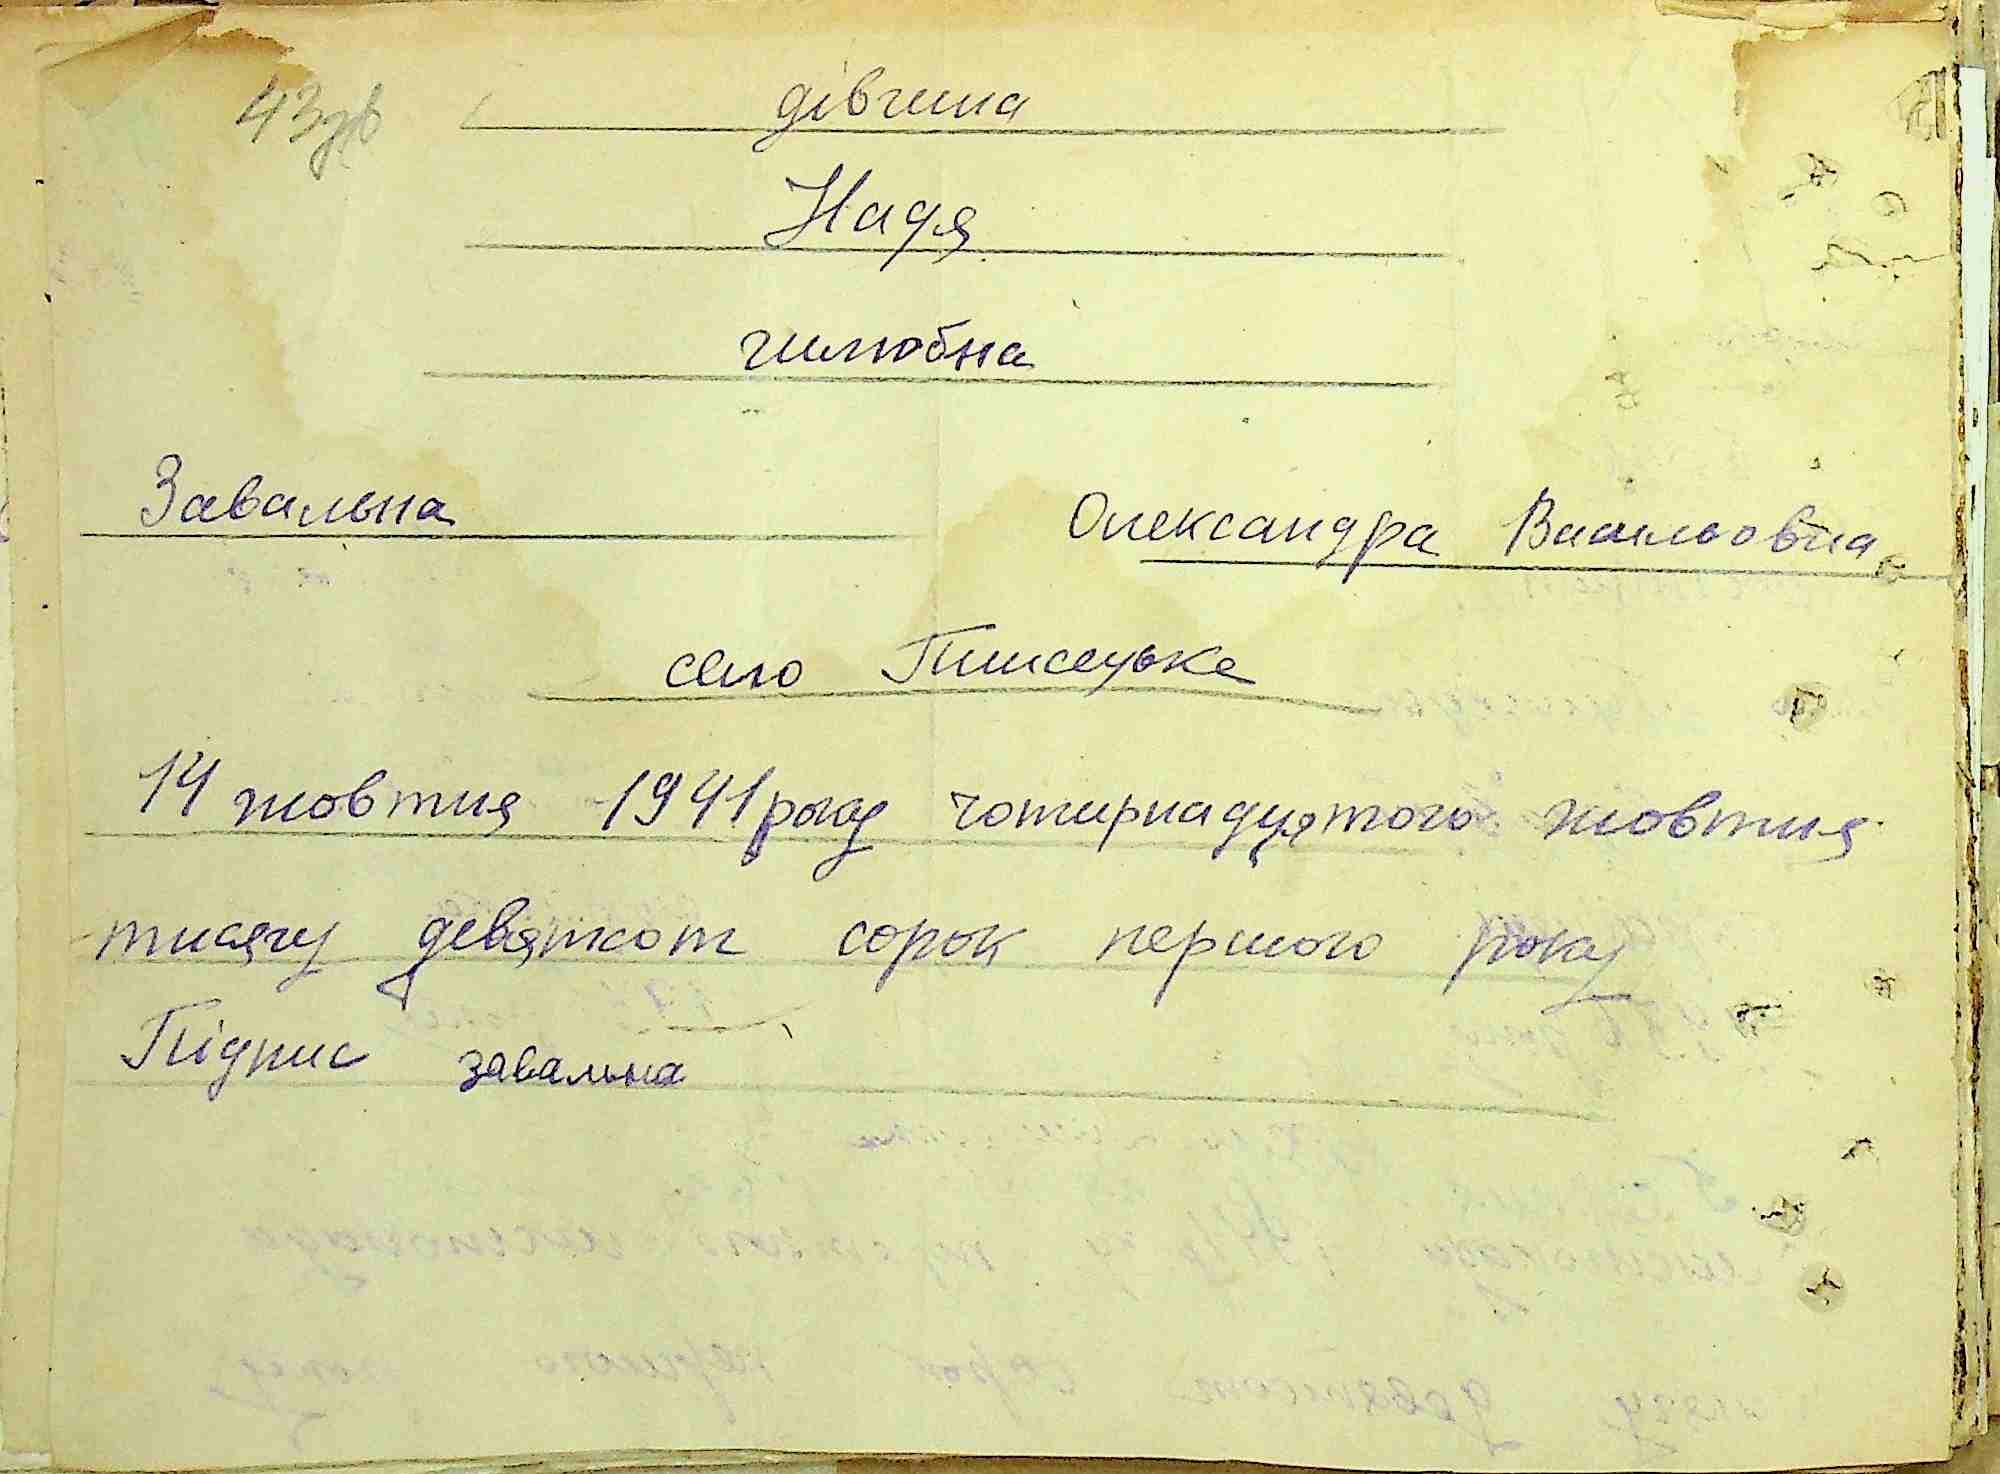 43зв
дівчина
Надя
шлюбна
Завальна Олександра Васильовна
село
14 жовтня 1941 року чотирнадцятого жовтня
тисячу девяткот сорок першого року
Підпис завальна